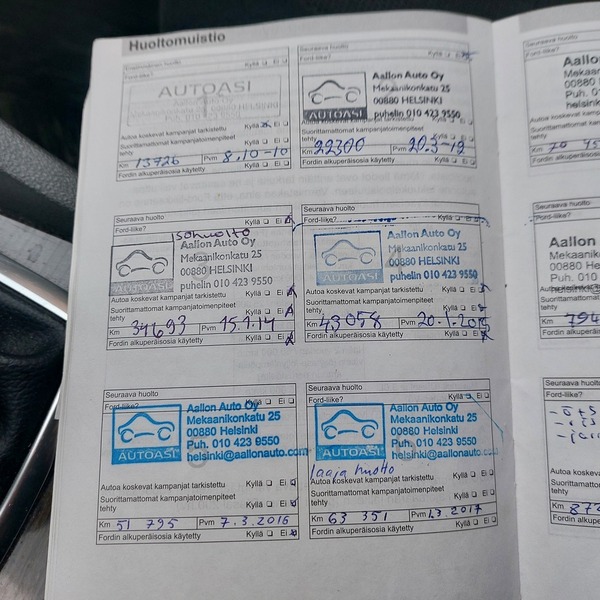 Huoltomuistio
Ensimmäinen huolto
Ford-liike? Kyllä ❏ Ei ❏
AUTOASI
Autoa koskevat kampanjat tarkistettu
Kyllä ❏ Ei ❏
Suorittamattomat kampanjatoimenpiteet
tehty Kyllä ❏ Ei ❏
Km 13726 Pvm 8.10-10
Fordin alkuperäisosia käytetty
Seuraava huolto
Ford-liike? Kyllä ❏ Ei
Aallon Auto Oy
Mekaanikonkatu 25
00880 HELSINKI
AUTOASI puhelin 010 423 9550
Autoa koskevat kampanjat tarkistettu
Kyllä ❏ Ei ❏
Suorittamattomat kampanjatoimenpiteet
tehty Kyllä ❏ Ei ❏
Km 22300 Pvm
Fordin alkuperäisosia käytetty
Seuraava huolto
Ford-liike? Kyllä ❏ Ei ❏
Aallon Auto Oy
Mekaanikonkatu 25
00880 HELSINKI
AUTOASI puhelin 010 423 9550
Autoa koskevat kampanjat tarkistettu
Kyllä ❏ Ei ❏
Suorittamattomat kampanjatoimenpiteet
tehty Kyllä ❏ Ei ❏
Km 34693 Pvm 15.1.14
Fordin alkuperäisosia käytetty Kyllä ❏ Ei ❏
Seuraava huolto
Ford-liike? Kyllä ❏ Ei ❏
Aallon Auto Oy
Mekaanikonkatu 25
00880 HELSINKI
AUTOASI puhelin 010 423 9550
Autoa koskevat kampanjat tarkistettu
Kyllä ❏ Ei ❏
Suorittamattomat kampanjatoimenpiteet
tehty Kyllä ❏ Ei ❏
Km 43058 Pvm 20.1.2015
Fordin alkuperäisosia käytetty Kyllä ❏ Ei ❏
Seuraava huolto
Ford-liike?
Aallon Auto Oy
Mekaanikonkatu 25
00880 Helsinki
Puh. 010 423 9550
AUTOASI helsinki@aallonauto.com
Autoa koskevat kampanjat tarkistettu Kyllä ❏ Ei ❏
Suorittamattomat kampanjatoimenpiteet
tehty Kyllä ❏ Ei ❏
Km 51 795 Pvm 7.3.2016
Fordin alkuperäisosia käytetty Kyllä ❏ Ei ❏
Seuraava huolto
Ford-liike? Kyllä ❏
Aallon Auto Oy
Mekaanikonkatu 25
00880 Helsinki
Puh. 010 423 9550
AUTOASI helsinki@aallonauto.com
laaja huolto
Autoa koskevat kampanjat tarkistettu
Kyllä ❏ Ei ❏
Suorittamattomat kampanjatoimenpiteet
tehty Kyllä ❏ Ei ❏
Km 63 351 Pvm 1.3.2017
Fordin alkuperäisosia käytetty Kyllä ❏ Ei ❏
Seuraava huolto
Ford-liike?
Mekaan
00880
Puh.
helsink
Autoa koskevat
Suorittamattomat
tehty
Km
Fordin alkuperäis
Seuraava huolto
Ford-liike?
Aallon
Mekaanik
00880 H
Suorittamattomat
tehty
Km 794
Fordin alkuperäiso
Seuraava huolto
Autoa koskevat ka
Suorittamattomat k
tehty
Km 872
Fordin alkuperäisos